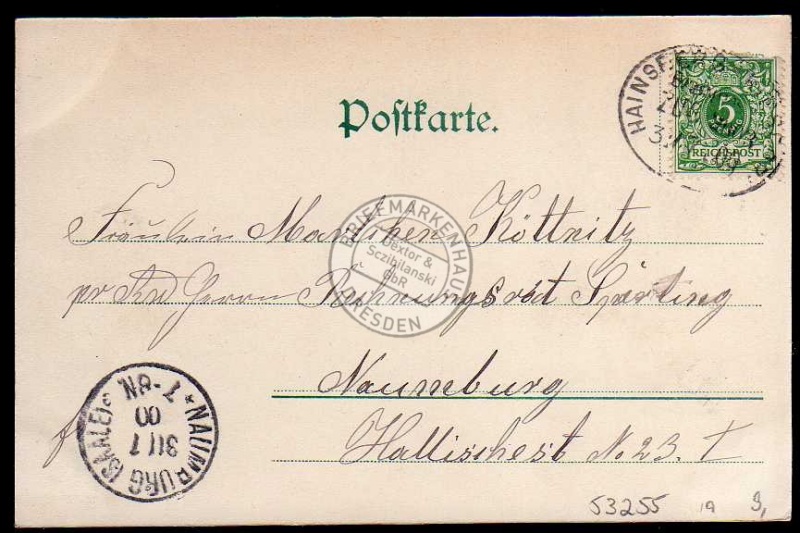 Postkarte.
HAINSBERG
5
PFENNIG
REICHSPOST
Fräulein Köttnitz
Herrn Rechnungsrat
Naumburg
Hallischest No 23. I
BRIEFMARKENHAUS
Dextor &
Sczibilanski
GbR
DRESDEN
*NAUMBURG (SAALE)c
31/1
00
7-8N.
53255 19 3,